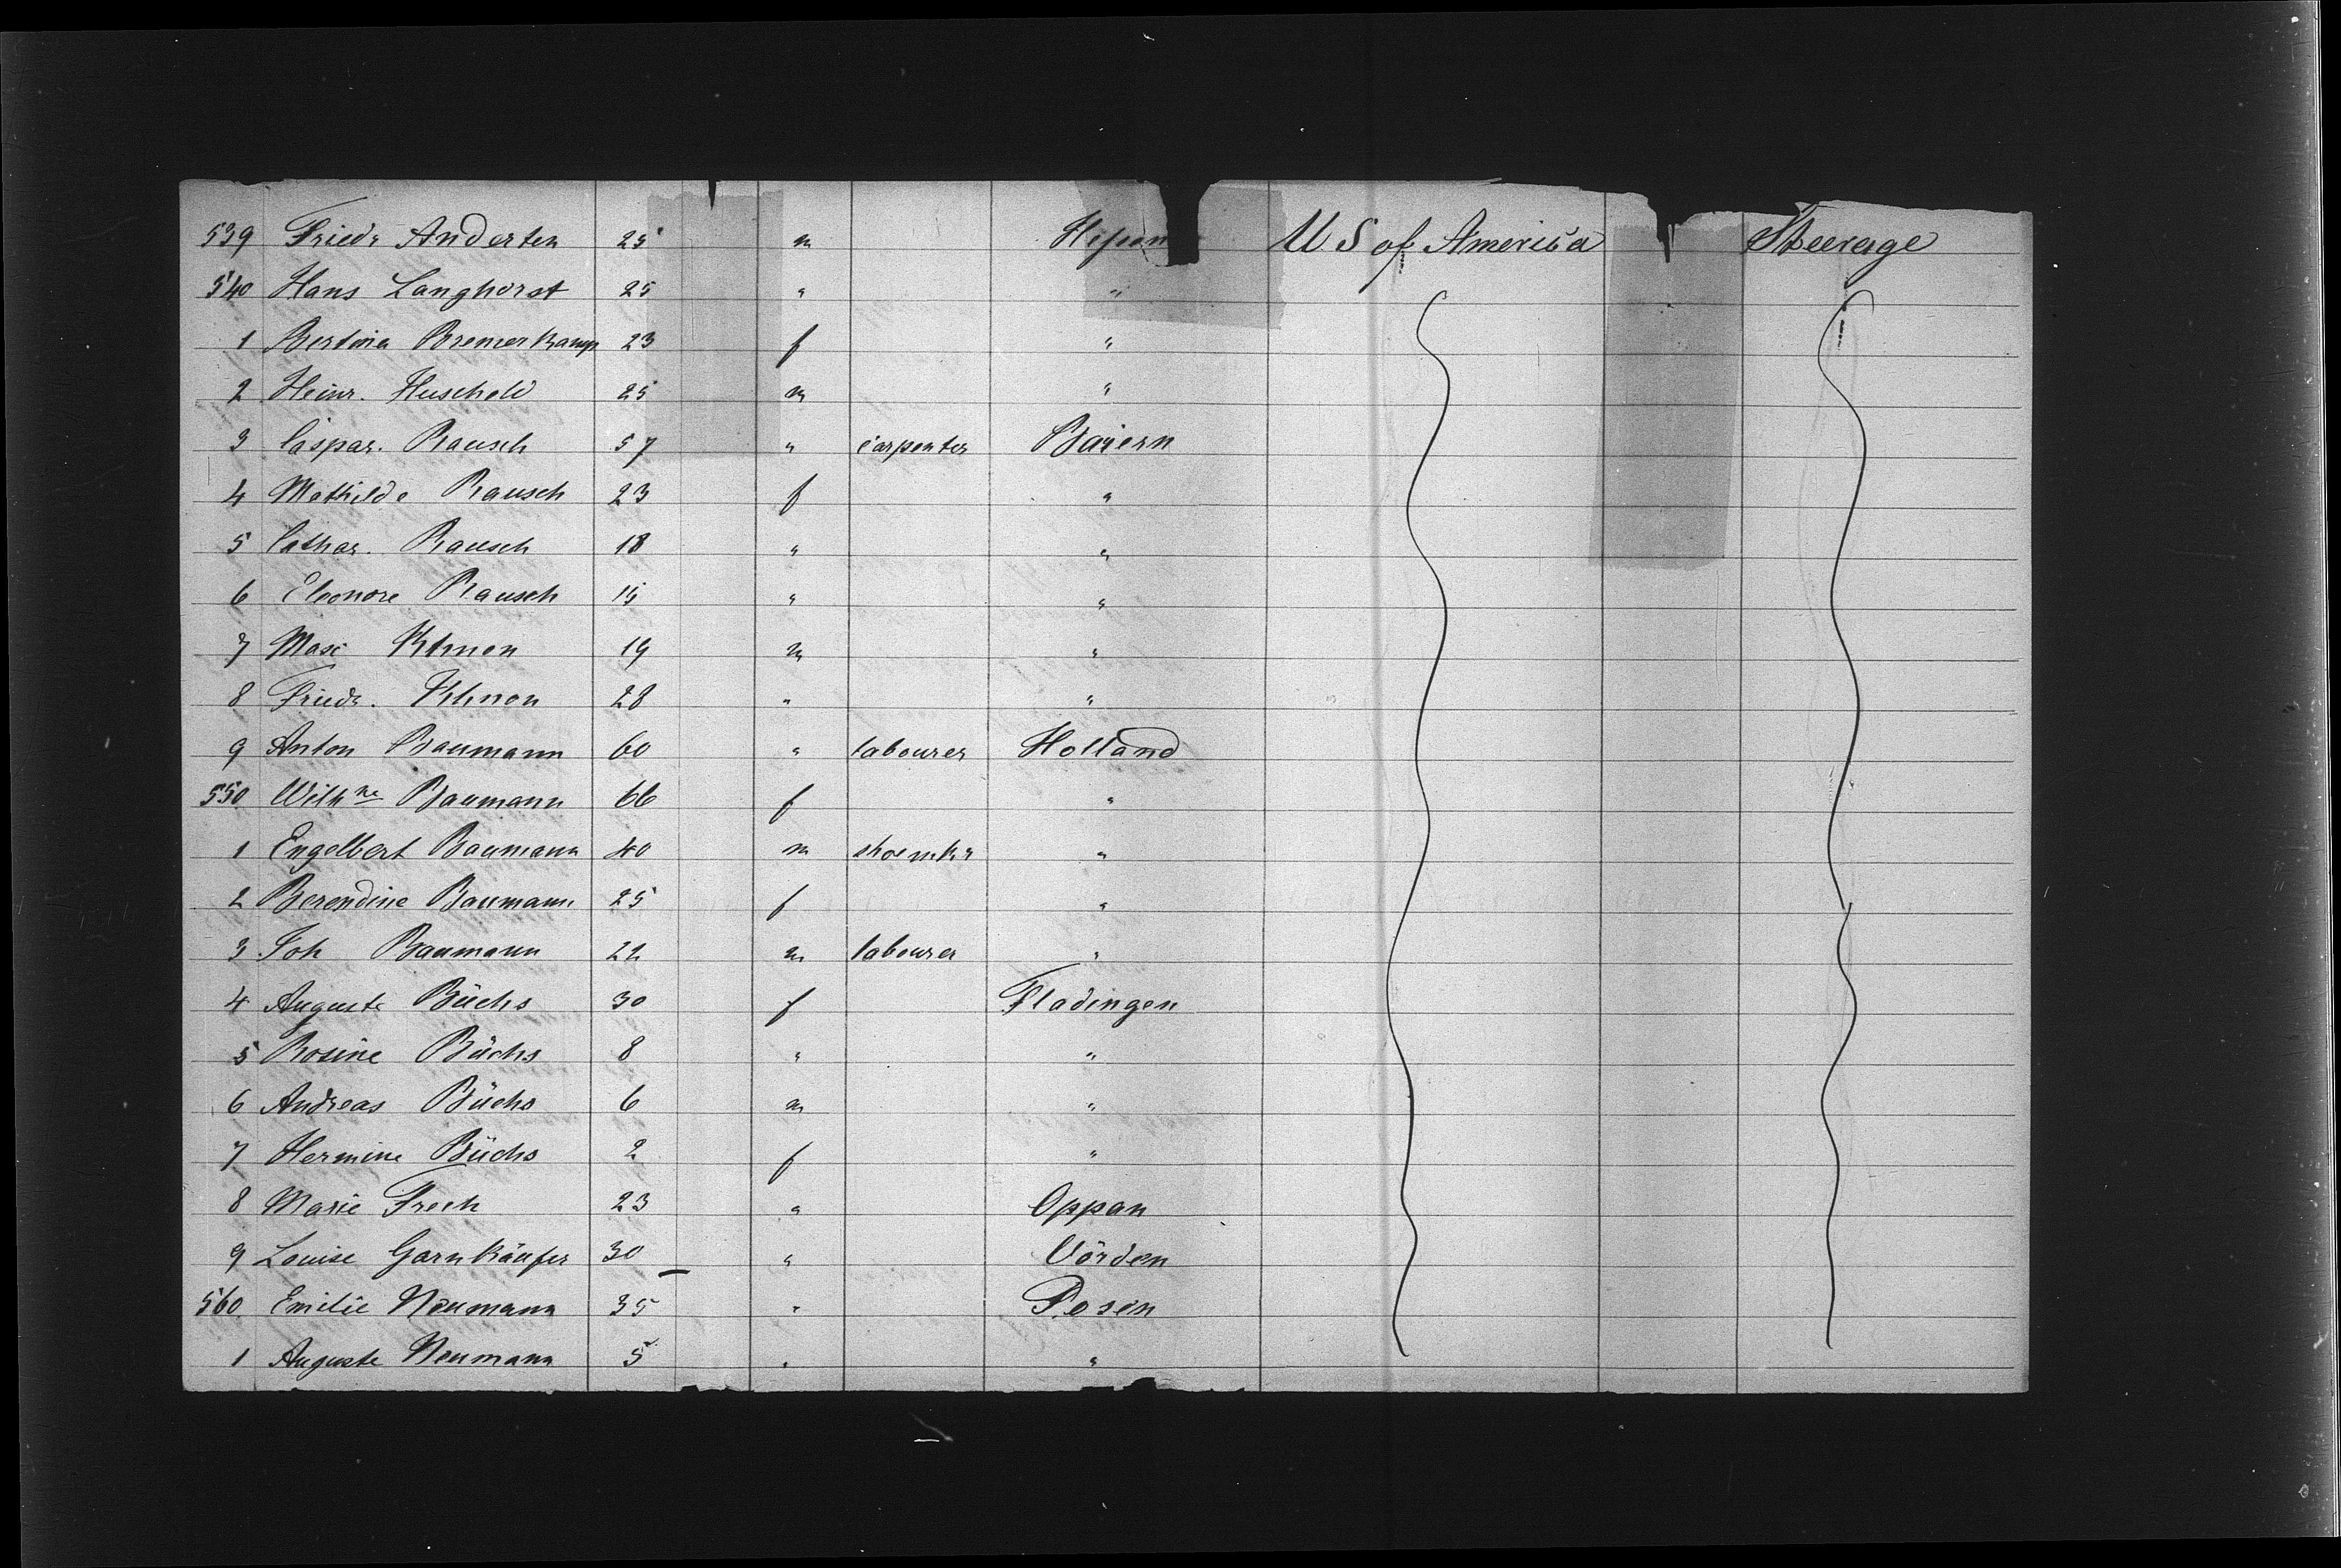 539 Friedr Anderten 25 m U S of America Steerage
540 Hans Langhorst 25 " "
1 Bertina Bremerkamp 23 f "
2 Heinr. 25 m "
3 Caspar. Rausch 57 " carpenter Baiern
4 Mathilde Rausch 23 f "
5 Cathar. Rausch 18 " "
6 Eleonore Rausch 15 " "
7 19 m "
8 Friedr. 28 " "
9 Anton Baumann 60 " labourer Holland
550 Wilhne Baumann 66 f "
1 Engelbert Baumann 40 m shoemkr "
2 Berendine Baumann 25 f "
3 Joh Baumann 22 m labourer "
4 Auguste Büchs 30 f Fladingen
5 Rosine Büchs 8 " "
6 Andreas Büchs 6 m "
7 Hermine Büchs 2 f "
8 Marie Frech 23 " Oppan
9 Louise Garnkäufer 30 " Vörden
560 Emilie Neumann 35 " Posen
1 Auguste Neumann 5 " "